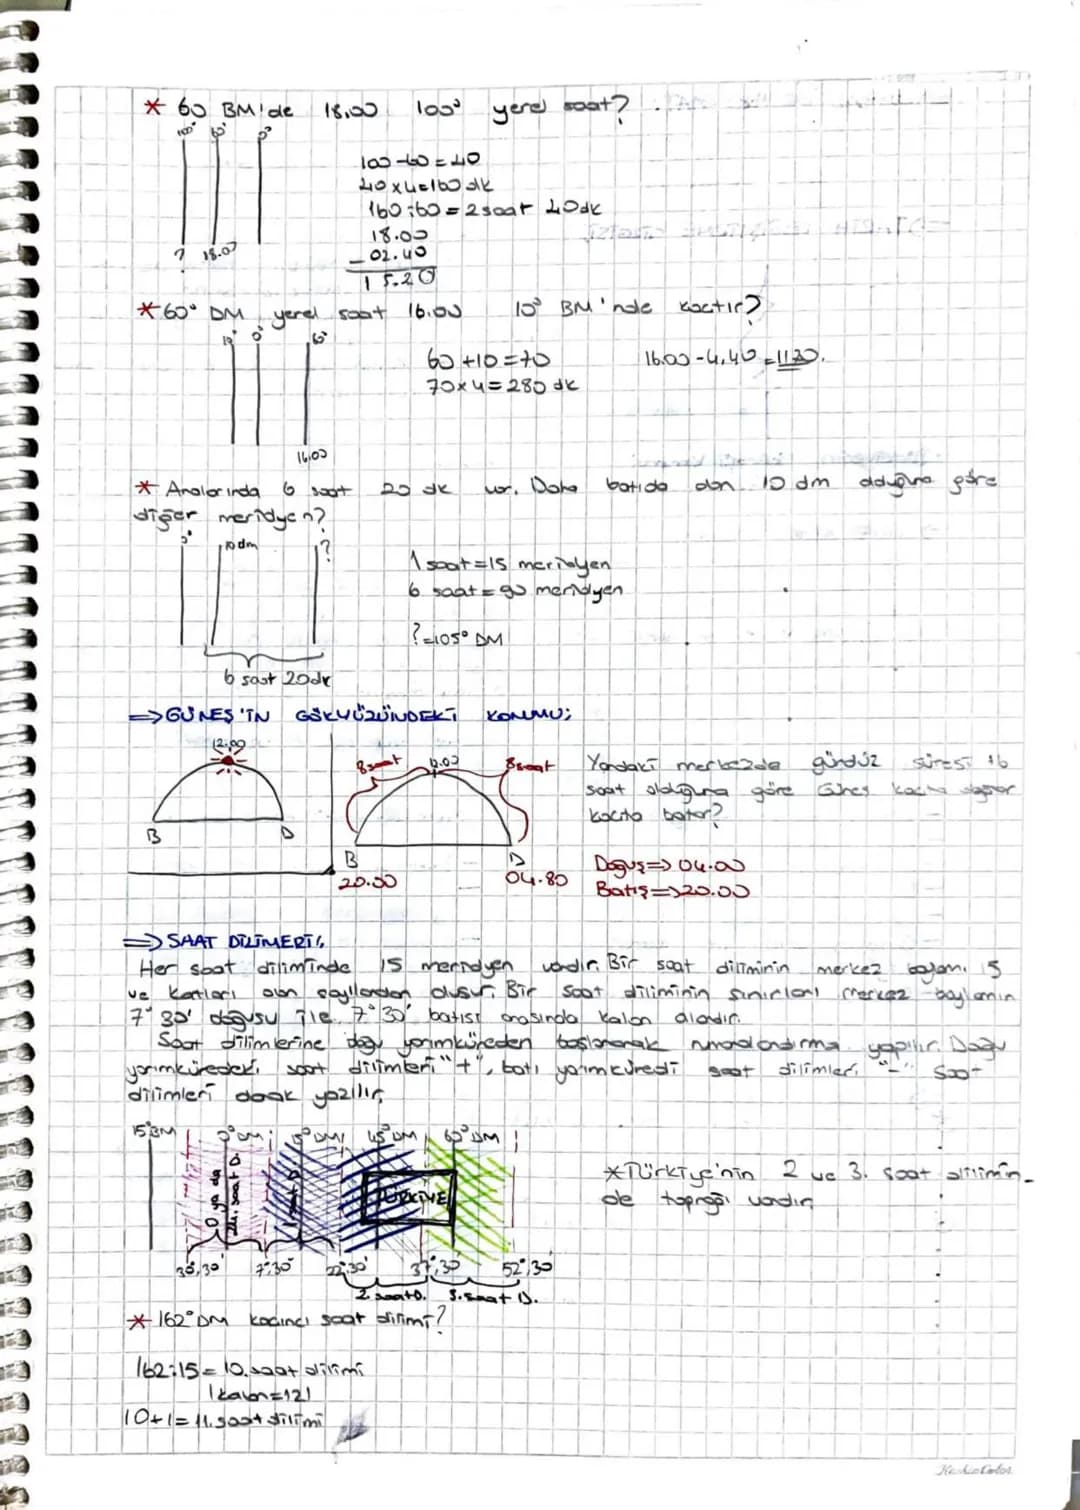 * 60 BM'de 18.00 100° yerel saat?
100° 60° 0°
100-60=40
40x4=160 dk
160:60=2 saat 40dk
18.00
- 02.40
15.20
? 18.00
* 60° DM yerel saat 16.00 10° BM'nde kaçtır?
10° 0° 60°
60+10=70
70x4=280 dk
16.00-4.40=11.20.
16.00
* Aralarında 6 saat 20 dk var. Daha batıda olan 10 dm olduğuna göre
diğer meridyen?
0° 10 dm ?
1 saat=15 meridyen
6 saat=90 meridyen
?=105° DM
6 saat 20dk
=> GÜNEŞ'İN GÖKYÜZÜNDEKİ KONUMU;
12.00
B D
8 saat 12.00 8 saat
B D
20.00 04.00
Yandaki merkezde gündüz süresi 16
saat olduğuna göre Güneş kaçta doğar
kaçta batar?
Doğuş=> 04.00
Batış=> 20.00
=> SAAT DİLİMERİ;
Her saat diliminde 15 meridyen vardır. Bir saat diliminin merkez boylamı 15
ve katları olan sayılardan oluşur. Bir saat diliminin sınırları merkez boylamın
7° 30' doğusu ile 7° 30' batısı arasında kalan alandır.
Saat dilimlerine doğu yarımküreden başlanarak numaralandırma yapılır. Doğu
yarımküredeki saat dilimleri "+", batı yarımküredi saat dilimleri "-" saat
dilimleri olarak yazılır.
15°BM 0° DM 15° DM 45° DM 60° DM
0 ya da
24. saat D.
1. saat D.
TÜRKİYE
7°30' 22°30' 37°,30' 52°,30'
2. saat D. 3. saat D.
*Türkiye'nin 2 ve 3. saat dilimin-
de toprağı vardır.
* 162° DM kaçıncı saat dilimi?
162:15=10. saat dilimi
(kalan=12)
10+1=11. saat dilimi